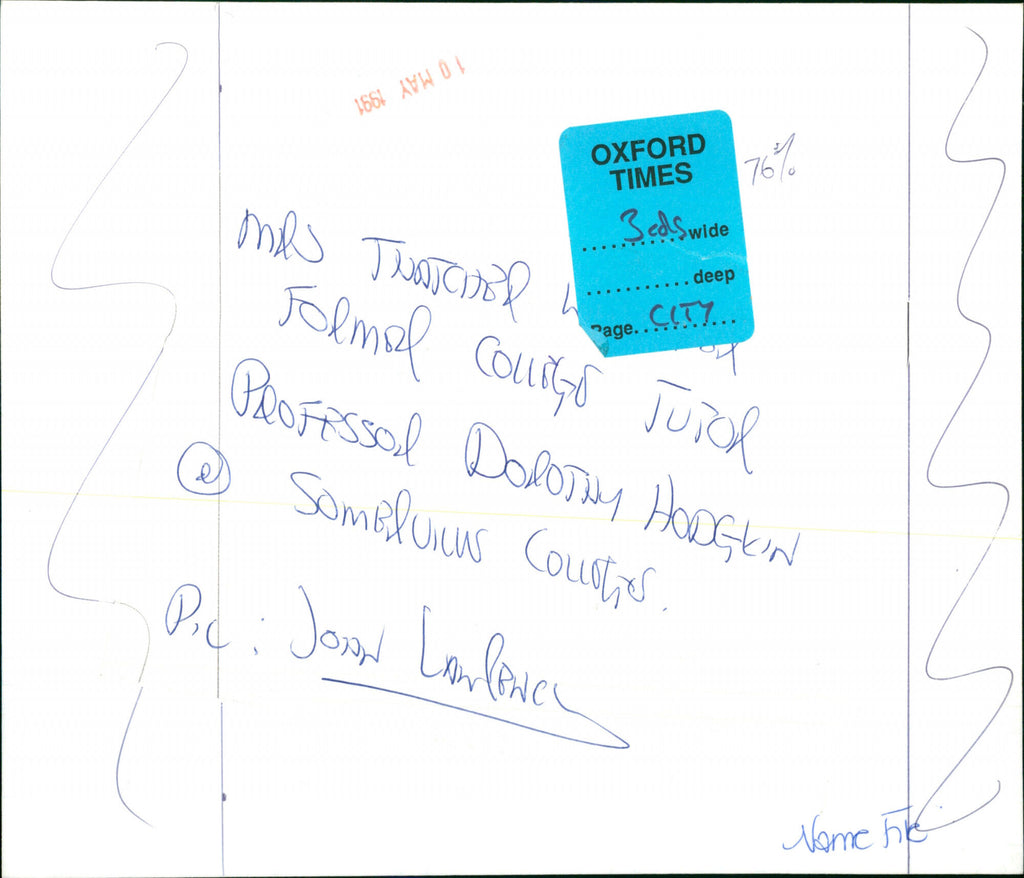 10 MAY 1991
OXFORD
TIMES
3 cols wide
deep
Page CITY
76%
MRS THATCHER
FORMER COLLEGE TUTOR
PROFESSOR DOROTHY HODGKIN
@ SOMERVILLE COLLEGE.
Pic: JOHN LAWRENCE
Name File